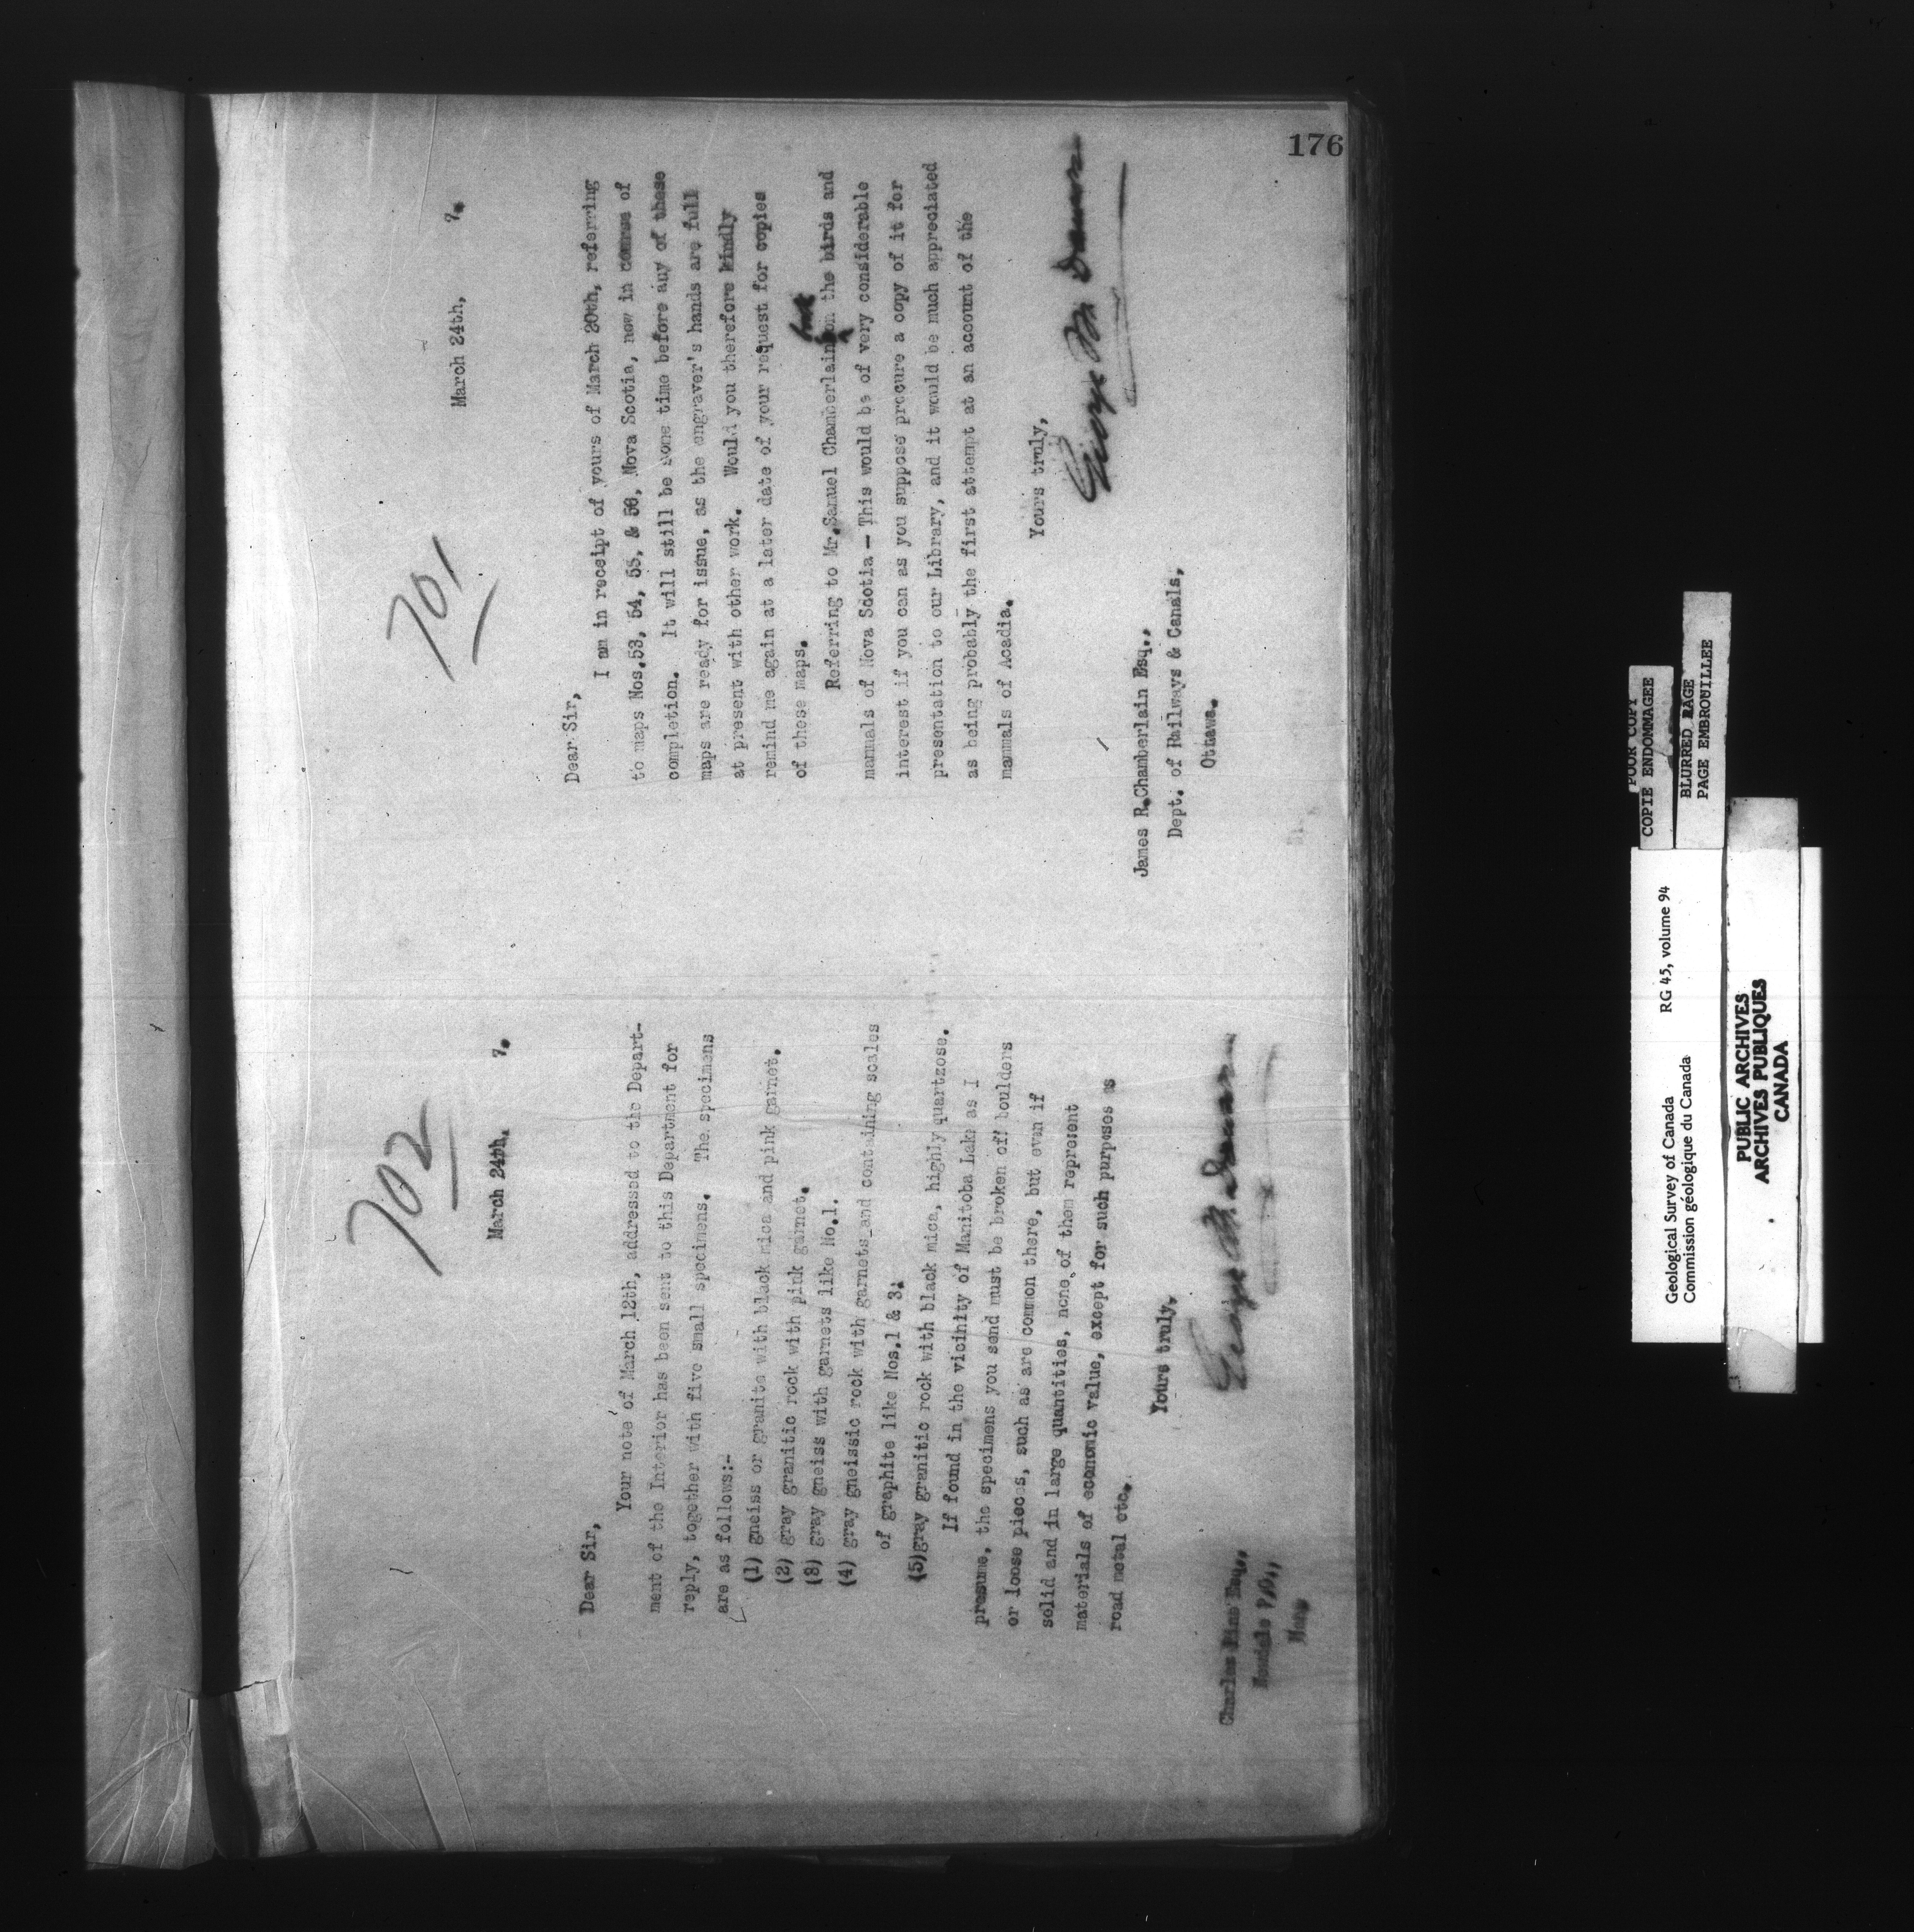 176
701
March 24th, 7.
Dear Sir,
I am in receipt of yours of March 20th, referring
to maps Nos.53, 54, 55, & 56, Nova Scotia, now in course of
completion. It will still be some time before any of these
maps are ready for issue, as the engraver's hands are full
at present with other work. Would you therefore kindly
remind me again at a later date of your request for copies
of these maps.
Referring to Mr.Samuel Chamberlain on the birds and
mammals of Nova Scotia — This would be of very considerable
interest if you can as you suppose procure a copy of it for
presentation to our Library, and it would be much appreciated
as being probably the first attempt at an account of the
mammals of Acadia.
Yours truly,
George M. Dawson
James R.Chamberlain Esq.,
Dept. of Railways & Canals,
Ottawa.
702
March 24th. 7.
Dear Sir,
Your note of March 12th, addressed to the Depart-
ment of the Interior has been sent to this Department for
reply, together with five small specimens. The specimens
are as follows:-
(1) gneiss or granite with black mica and pink garnet.
(2) gray granitic rock with pink garnet.
(3) gray gneiss with garnets like No.1.
(4) gray gneissic rock with garnets and containing scales
of graphite like Nos.1 & 3.
(5)gray granitic rock with black mica, highly quartzose.
If found in the vicinity of Manitoba Lake as I
presume, the specimens you send must be broken off boulders
or loose pieces, such as are common there, but even if
solid and in large quantities, none of them represent
materials of economic value, except for such purposes as
road metal etc.
Yours truly,
George M. Dawson
Charles Esq.,
P.O.,
Man.
POOR COPY
COPIE ENDOMMAGEE
BLURRED PAGE
PAGE EMBROUILLEE
Geological Survey of Canada RG 45, volume 94
Commission géologique du Canada
PUBLIC ARCHIVES
ARCHIVES PUBLIQUES
CANADA